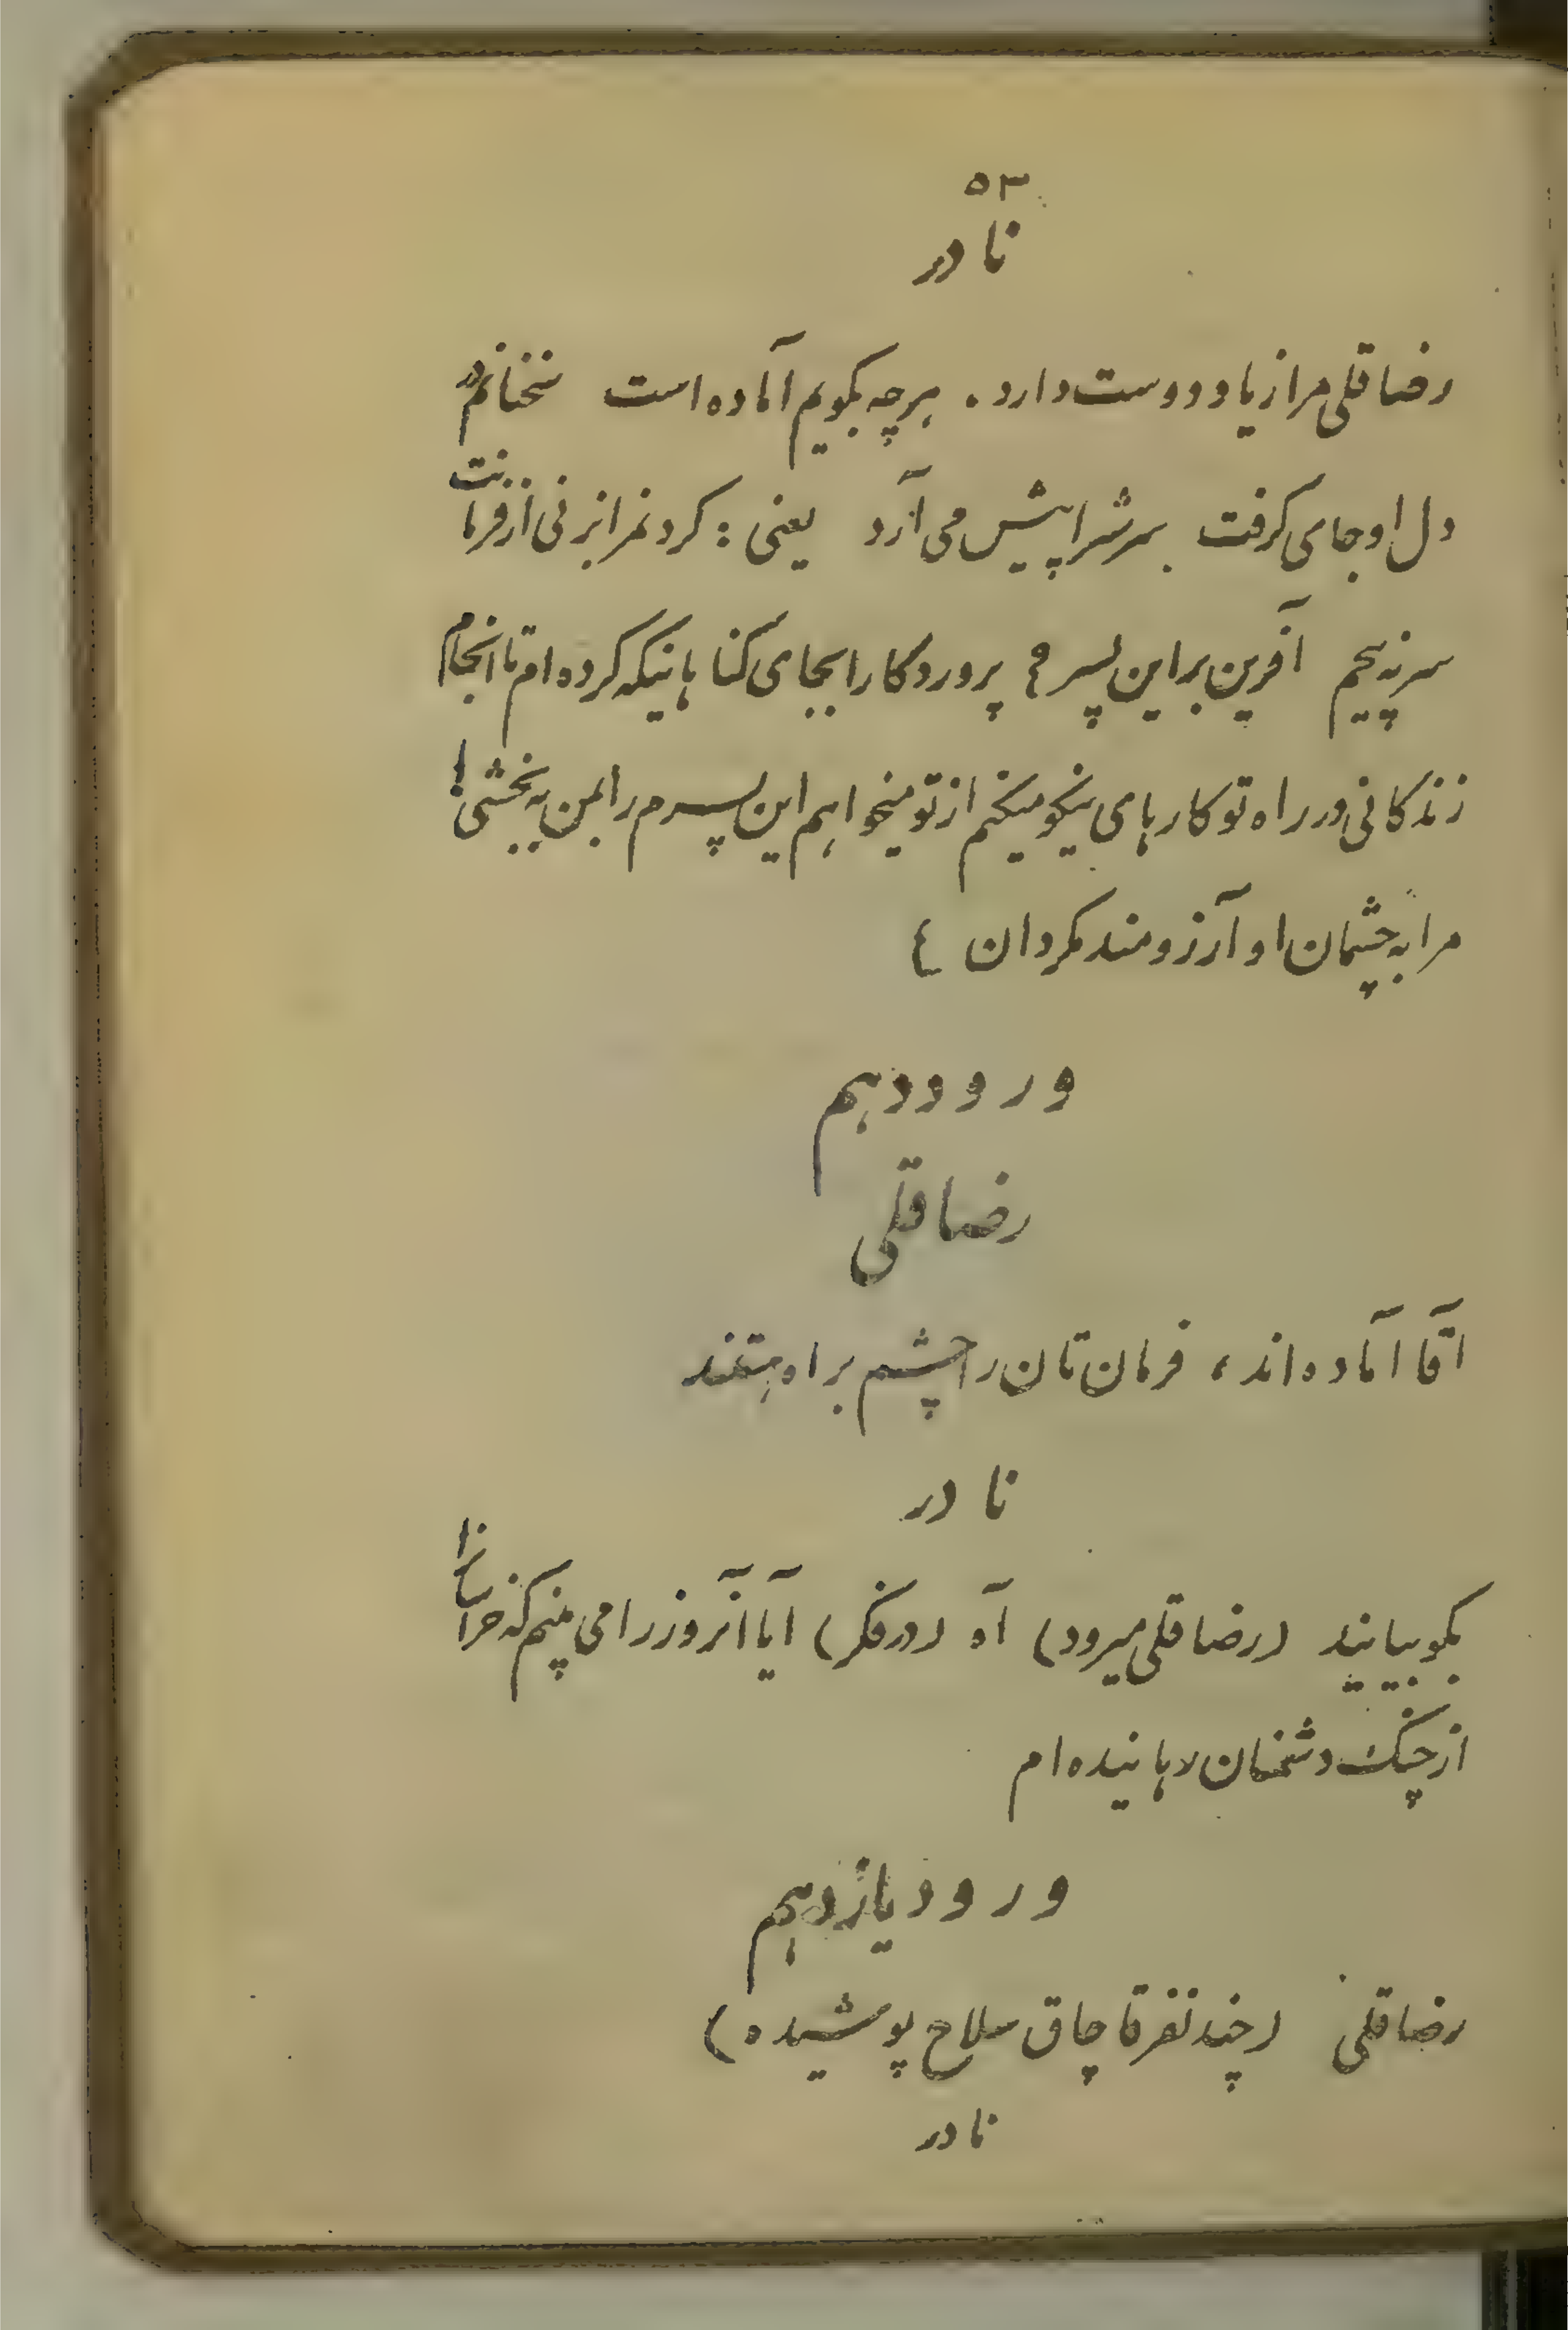 ۵۳
نادر
رضاقلی مرا زیاد دوست دارد. هرچه بگویم آماده است سخنانم در
دل او جای گرفت سرشرا پیش می آرد یعنی: گردنمرا بزنی از فرمانت
سر نه پیچم آفرین بر این پسر پروردگارا بجای گناهانیکه کرده ام تا انجام
زندگانی در راه تو کارهای نیکو میکنم از تو میخواهم این پسرم را بمن به بخشی!
مرا به چشمان او آرزومند مگردان
ورود دهم
رضاقلی
آقا آماده اند، فرمان تان را چشم براه هستند
نادر
بگو بیایند (رضاقلی میرود) آه (در فکر) آیا آنروز را می بینم که خراسانرا
از چنگ دشمنان رهانیده ام
ورود یازدهم
رضاقلی (چند نفر قاچاق سلاح پوشیده)
نادر